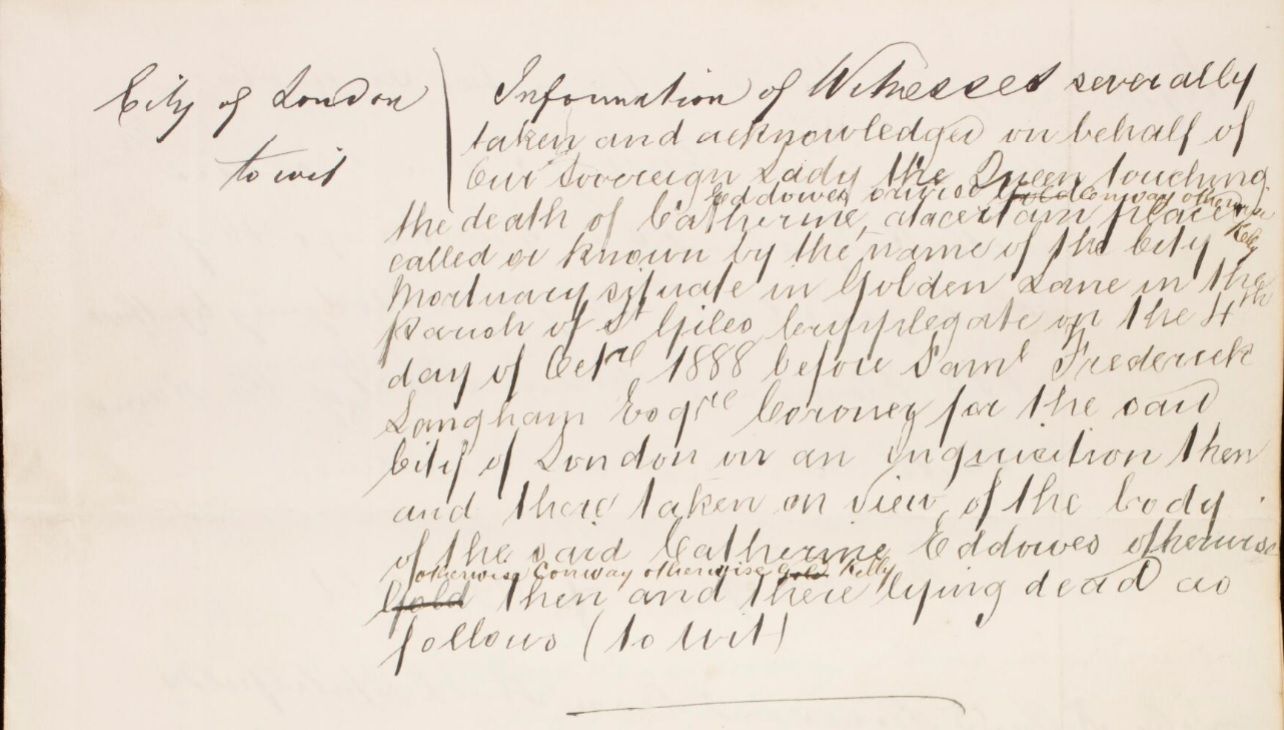 City of London
to wit
Information of Witnesses severally
taken and acknowledged on behalf of
Our Sovereign Lady the Queen touching
Eddowes otherwise Gold Conway otherwise
the death of Catherine, at a certain place
Kelly
called or known by the name of the City
Mortuary situate in Golden Lane in the
Parish of St Giles Cripplegate on the 4th
day of Octr 1888 before Saml Frederick
Langham Esqre Coroner for the said
City of London on an inquisition then
and there taken on view of the body
of the said Catherine Eddowes otherwise
otherwise Conway otherwise Gold Kelly
Gold then and there lying dead as
follows (to wit)